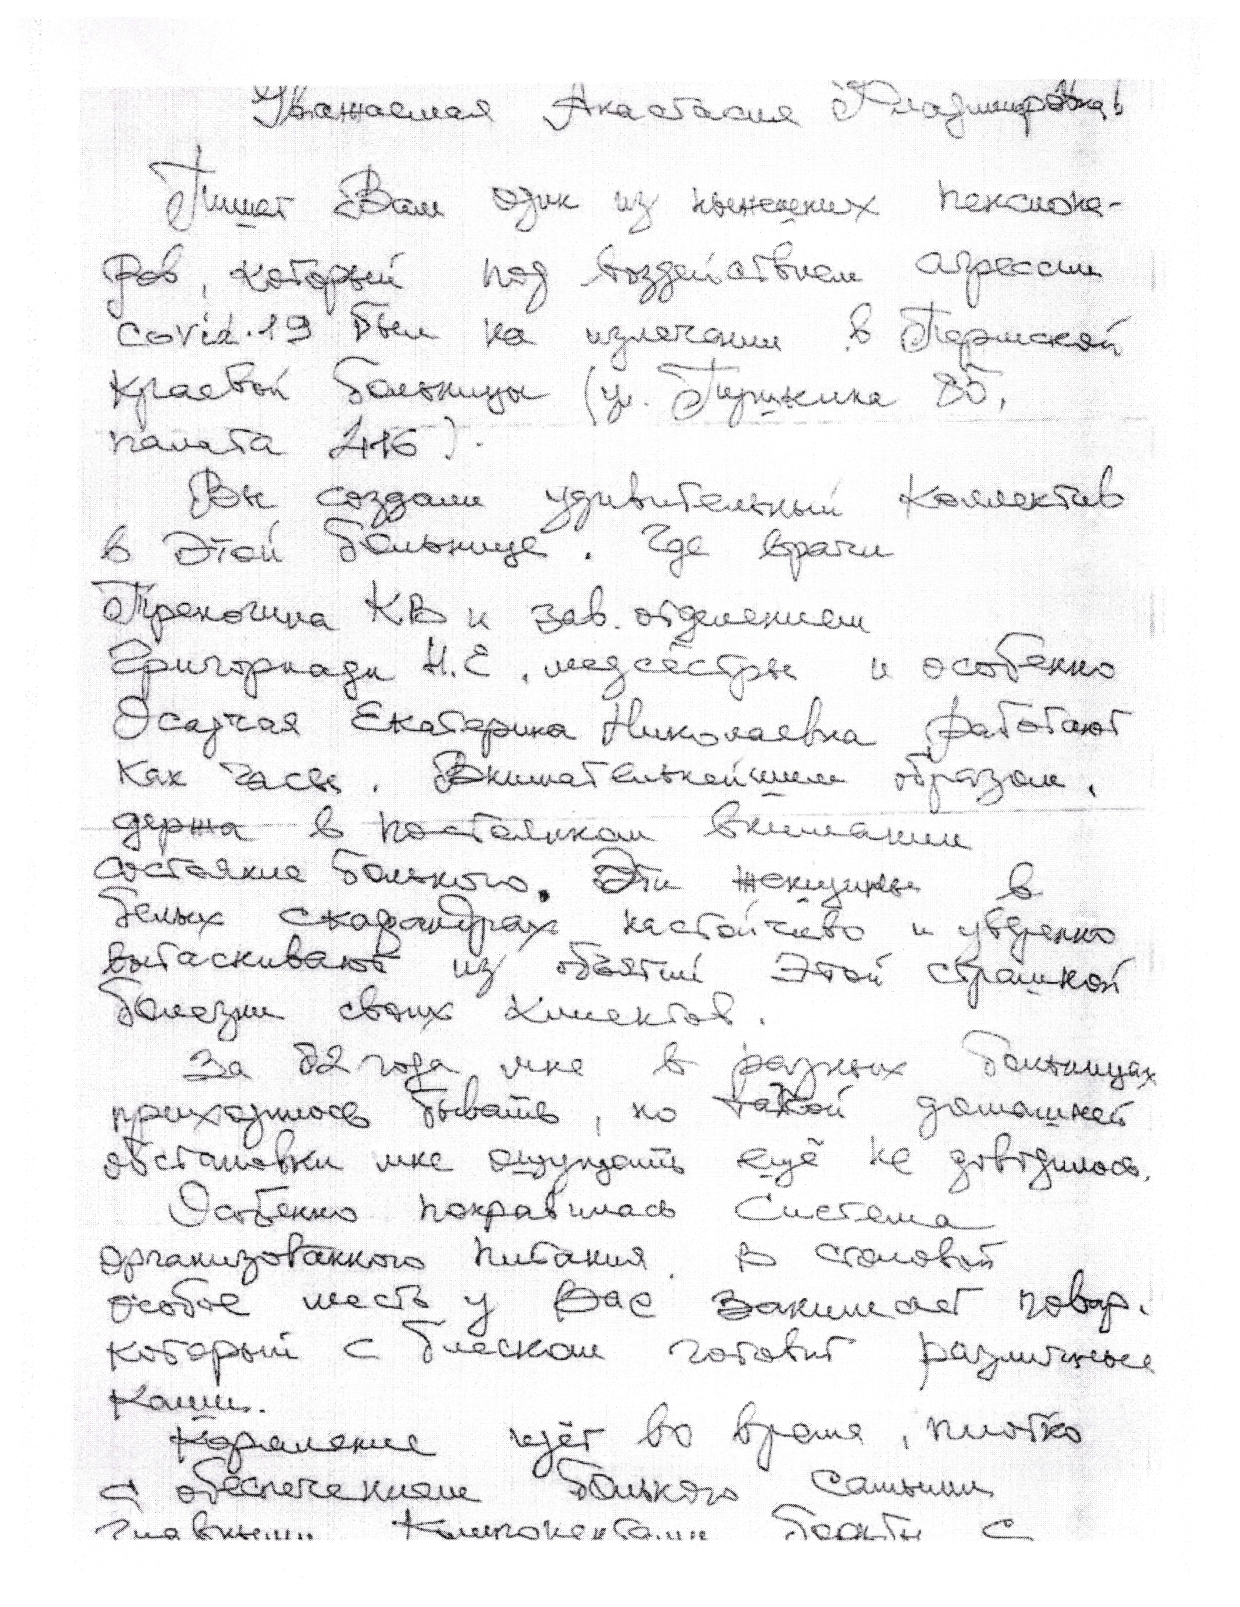 Уважаемая Анастасия Владимировна!
Пишет Вам один из нынешних пенсионе-
ров, который под воздействием агрессии
covid-19 был на излечении в Пермской
краевой больницы (ул. Пушкина 85,
палата 416).
Вы создали удивительный коллектив
в этой больнице. Где врачи
КВ и зав. отделением
Н.Е, медсёстры и особенно
Осадчая Екатерина Николаевна работают
как часы. Внимательнейшим образом,
держа в постоянном внимании
состояние больного. Эти женщины в
белых скафандрах настойчиво и уверенно
вытаскивают из объятий этой страшной
болезни своих клиентов.
За 82 года мне в разных больницах
приходилось бывать, но такой домашней
обстановки мне ощущать ещё не доводилось.
Особенно понравилась система
организованного питания. В столовой
особое место у Вас занимает повар,
который с блеском готовит различные
каши.
Кормление идёт во время, плотно
с обеспечением больного самыми
главными компонентами борьбы с